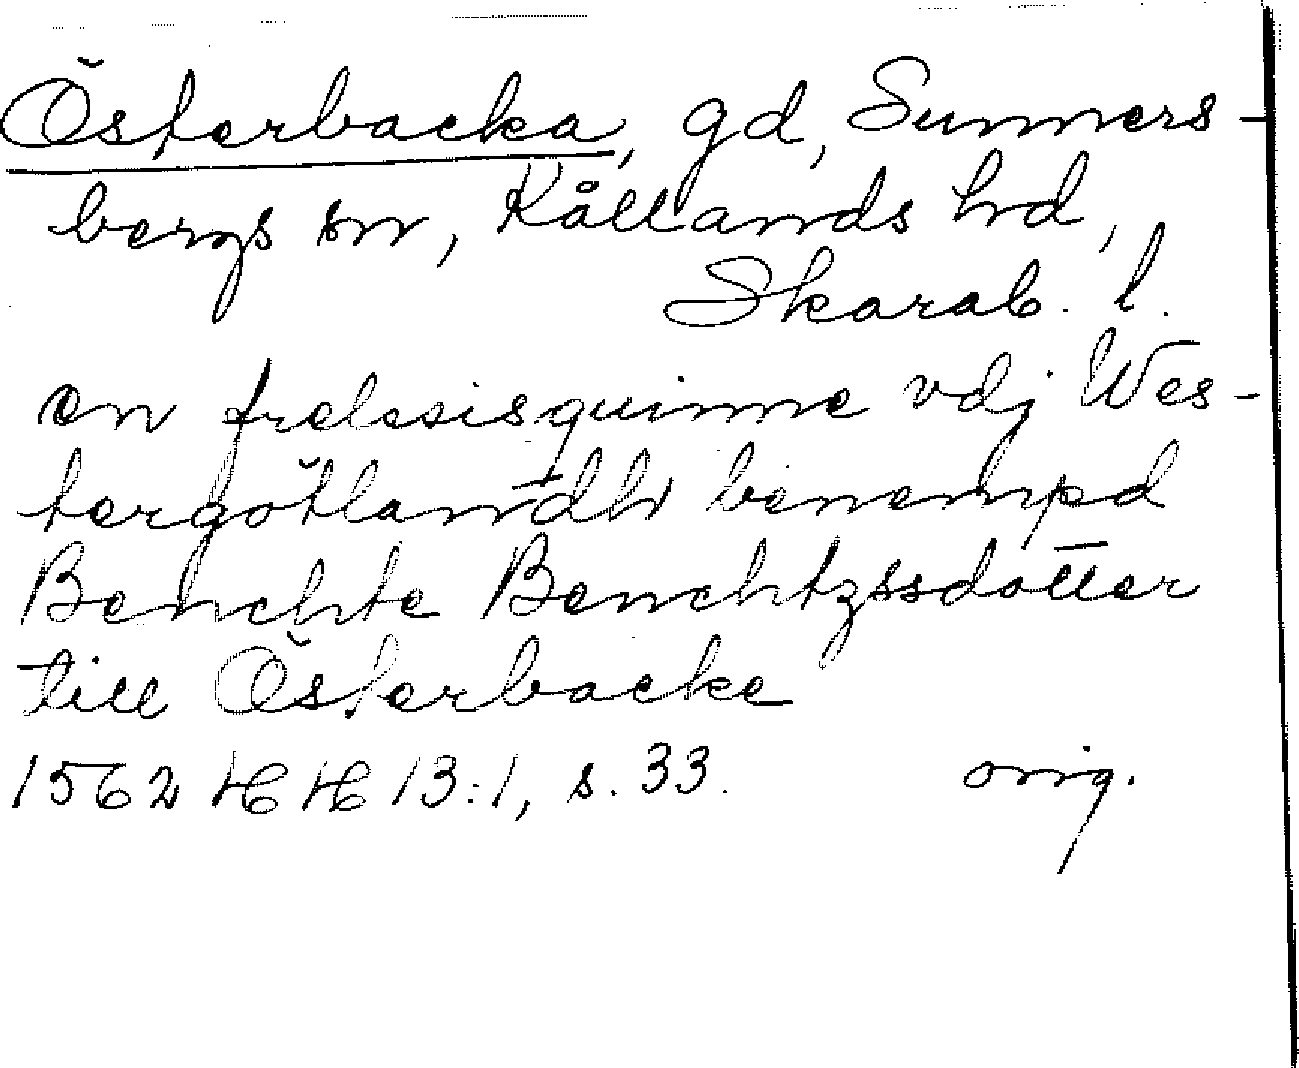 Österbacka, gd, Sunners-
bergs sn, Kållands hd,
Skarab. l.
en frelssisquinne vdj Wes-
tergötlandh benempd
Benchte Benchtzssdotter
till Österbacke
1562 HH 13:1, s. 33. orig.